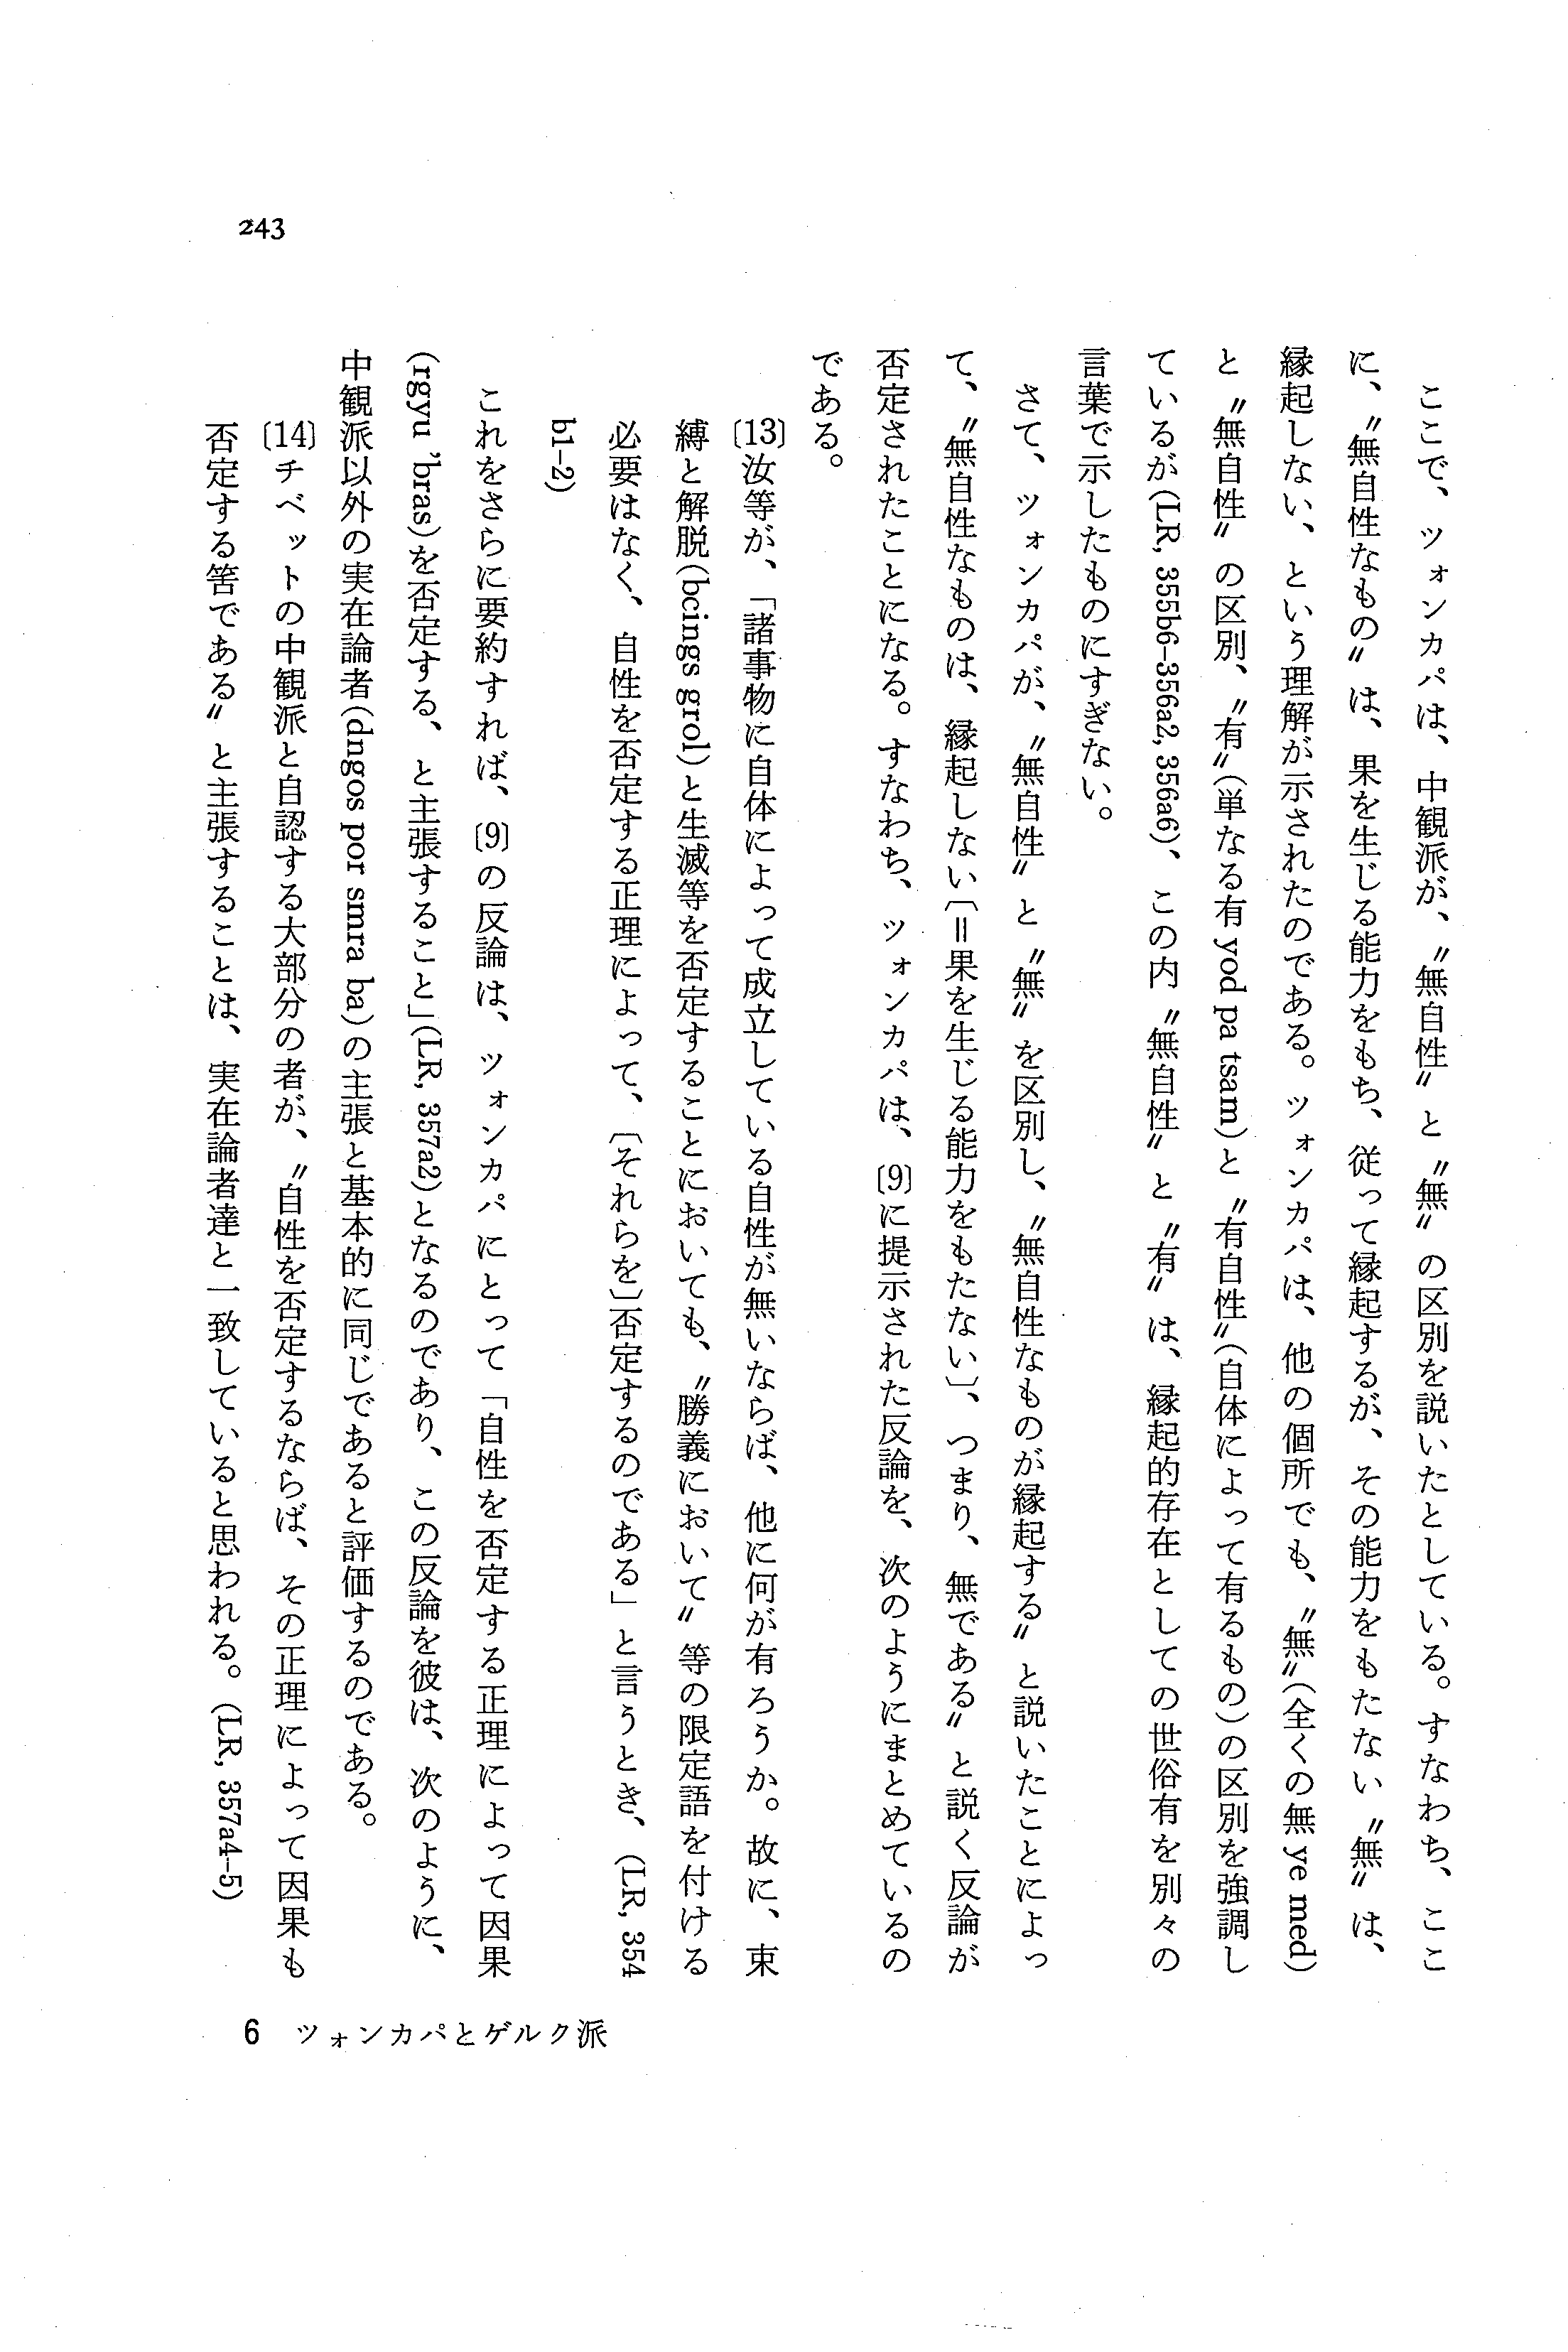 ここで、ツォンカパは、中観派が、〝無自性〟と〝無〟の区別を説いたとしている。すなわち、ここ
に、〝無自性なもの〟は、果を生じる能力をもち、従って縁起するが、その能力をもたない〝無〟は、
縁起しない、という理解が示されたのである。ツォンカパは、他の個所でも、〝無〟(全くの無 ye med)
と〝無自性〟の区別、〝有〟(単なる有 yod pa tsam)と〝有自性〟(自体によって有るもの)の区別を強調し
ているが(LR, 355b6-356a2, 356a6)、この内〝無自性〟と〝有〟は、縁起的存在としての世俗有を別々の
言葉で示したものにすぎない。
さて、ツォンカパが、〝無自性〟と〝無〟を区別し、〝無自性なものが縁起する〟と説いたことによっ
て、〝無自性なものは、縁起しない〔=果を生じる能力をもたない〕、つまり、無である〟と説く反論が
否定されたことになる。すなわち、ツォンカパは、〔9〕に提示された反論を、次のようにまとめているの
である。
〔13〕汝等が、「諸事物に自体によって成立している自性が無いならば、他に何が有ろうか。故に、束
縛と解脱(bcings grol)と生滅等を否定することにおいても、〝勝義において〟等の限定語を付ける
必要はなく、自性を否定する正理によって、〔それらを〕否定するのである」と言うとき、(LR, 354
b1-2)
これをさらに要約すれば、〔9〕の反論は、ツォンカパにとって「自性を否定する正理によって因果
(rgyu ’bras)を否定する、と主張すること」(LR, 357a2)となるのであり、この反論を彼は、次のように、
中観派以外の実在論者(dngos por smra ba)の主張と基本的に同じであると評価するのである。
〔14〕チベットの中観派と自認する大部分の者が、〝自性を否定するならば、その正理によって因果も
否定する筈である〟と主張することは、実在論者達と一致していると思われる。(LR, 357a4-5)
6 ツォンカパとゲルク派
243